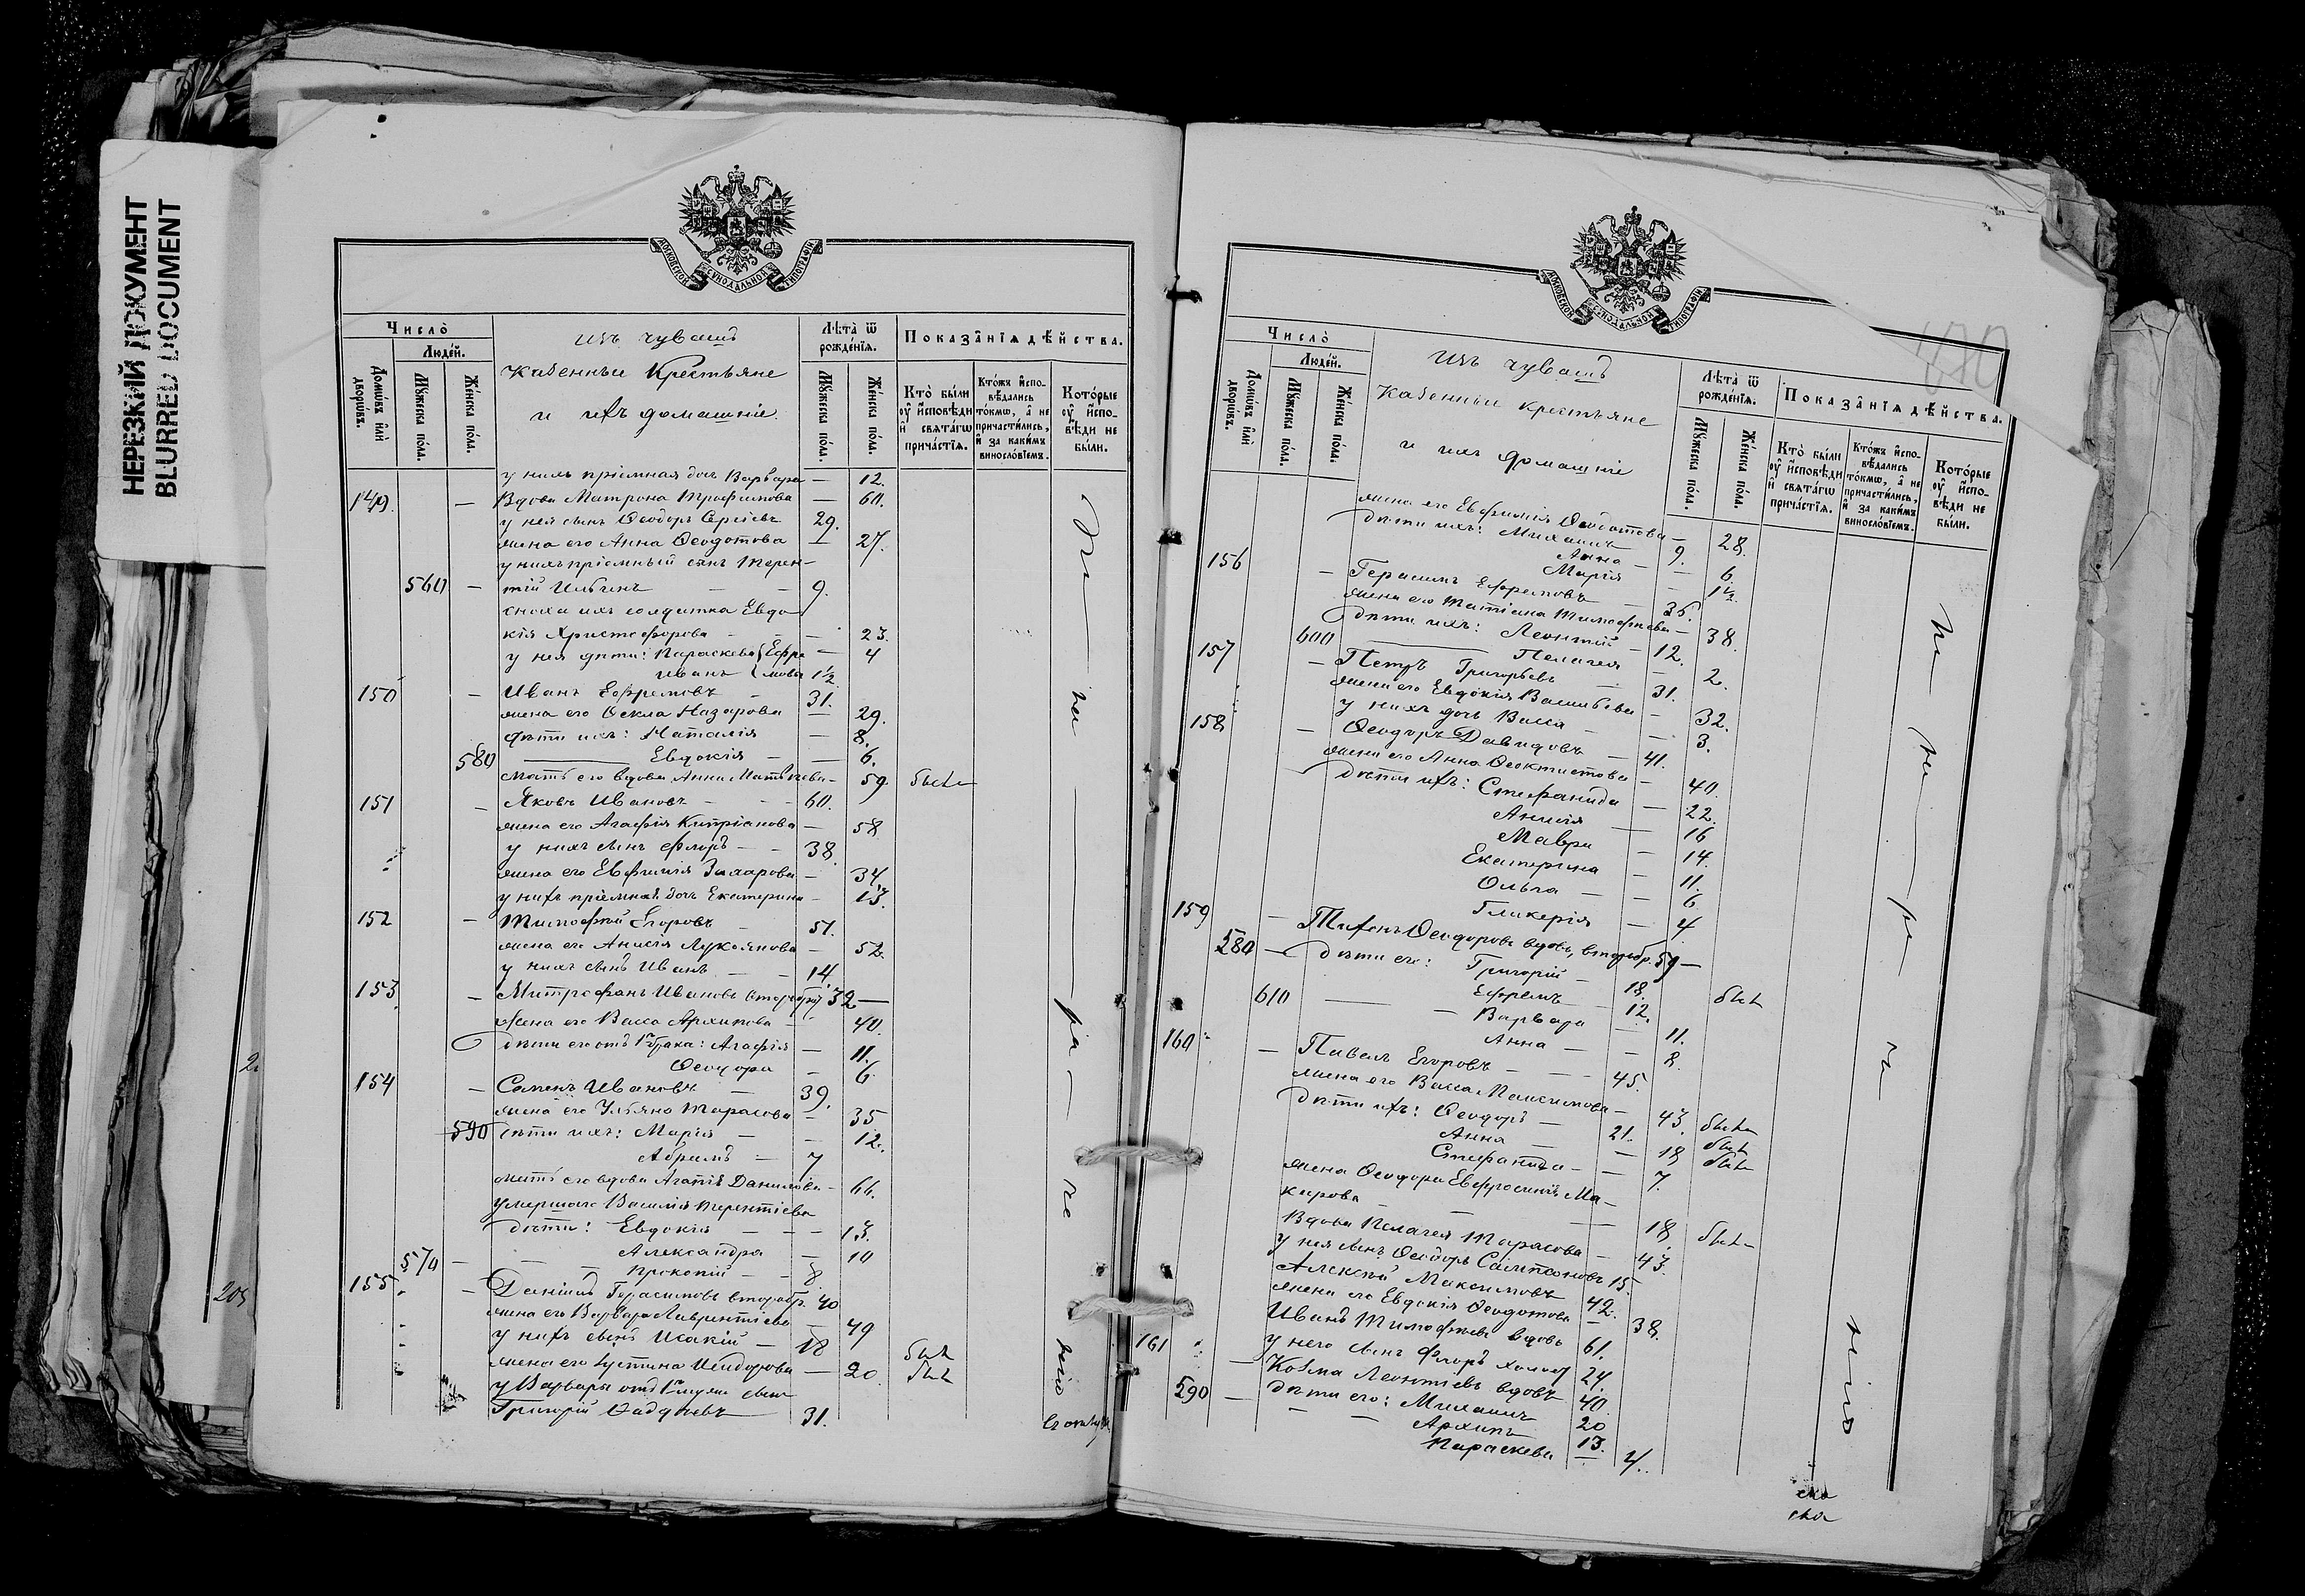 НЕРЕЗКИЙ ДОКУМЕНТ
BLURRED DOCUMENT
МОСКОВСКОЙ СѴНОДАЛЬНОЙ ТИПОГРАФІИ
Число̀
Людей.
Домѡвъ илѝ дворѡвъ.
Мꙋжеска пола.
Женска пола.
Изъ чувашъ
казенные Крестьяне
и ихъ домашніе
Лѣта̀ ѿ рожденїѧ.
Мꙋжеска пола.
Женска пола.
Показанїѧ дѣйства.
Кто̀ были оу҆ исповѣди и҆ свѧтагѡ причастїѧ.
Ктожъ исповѣдались токмѡ, а҆ не причастились, и҆ за какимъ винословїемъ.
Которые оу҆ исповѣди не были.
у нихъ пріемная дочь Варвара — 12.
149. — Вдова Матрона Трофимова — 60.
у нея сынъ Ѳеодоръ Сергіевъ 29.
жена его Анна Ѳеодотова — 27.
у нихъ пріемный сынъ Терен-
560 — тій Ильинъ — — 9.
сноха ихъ солдатка Евдо
кія Христофорова — — 23.
у нея дѣти: Параскева Ефре — 4
Иванъ мова 1½
150 — Иванъ Ефремовъ — 31.
жена его Ѳекла Назарова — 29.
дѣти ихъ: Наталія — 8.
580 Евдокія — — 6.
мать его вдова Анна Матвѣева — 59. была
151 — Яковъ Ивановъ — — 60.
жена его Агафія Кипріанова — 58
у нихъ сынъ Флоръ — — 38.
жена его Евфимія Захарова — 34.
у нихъ пріемная дочь Екатерина — 13.
152 — Тимофей Егоровъ — 51.
жена его Анисія Лукіянова — 52.
у нихъ сынъ Иванъ — — 14.
153 — Митрофанъ Ивановъ второбр. 32 —
жена его Васса Архипова — 40.
дѣти его отъ 1го брака: Агафія — 11.
Ѳеодора — 6.
154 — Семенъ Ивановъ — 39.
жена его Ульяна Тарасова — 35.
590 дѣти ихъ: Марія — — 12.
Абрамъ — 7
мать его вдова Агапія Данилова — 66.
умершаго Василія Терентіева
дѣти: Евдокія — — — 13.
Александра — 10
570 — — — Прокопій — — 8
155. — Даніилъ Герасимовъ второбр. 40
жена его Варвара Лаврентіева — 49
у нихъ сынъ Исакій — 18 былъ
жена его Іустина Исидорова — 20. была
у Варвары отъ 1го мужа сынъ
Григорій Ѳаддѣевъ 31.
470
Число̀
Людей.
Домѡвъ илѝ дворѡвъ.
Мꙋжеска пола.
Женска пола.
Изъ чувашъ
Казенные крестьяне
и ихъ домашніе
Лѣта̀ ѿ рожденїѧ.
Мꙋжеска пола.
Женска пола.
Показанїѧ дѣйства.
Кто̀ были оу҆ исповѣди и҆ свѧтагѡ причастїѧ.
Ктожъ исповѣдались токмѡ, а҆ не причастились, и҆ за какимъ винословїемъ.
Которые оу҆ исповѣди не были.
жена его Евфимія Ѳеодотова — 28.
дѣти ихъ: Михаилъ 9.
Анна — — 6.
Марія — 1½.
156 — Герасимъ Ефремовъ — 35.
жена его Татіана Тимофѣева — 38.
дѣти ихъ: Леонтій — 12.
600 Пелагея — 2.
157 — Петръ Григорьевъ — 31.
жена его Евдокія Васильева — 32.
у нихъ дочь Васса — — 3.
158 — Ѳеодоръ Давидовъ — 41.
жена его Анна Ѳеоктистова — 40.
дѣти ихъ: Стефанида — 22.
Анисія — 16
Мавра — 14.
Екатерина — 11.
Ольга — — 6
Гликерія — 4
159 — Тихонъ Ѳеодоровъ вдовъ, второбр. 59 —
580 — дѣти его: Григорій — 18. былъ
Ефремъ — 12.
610 — Варвара — 11.
Анна — — 8.
160 — Павелъ Егоровъ — — 45.
жена его Васса Максимова — 43. была
дѣти ихъ: Ѳеодоръ — 21. былъ
Анна — — 18 была
Стефанида — — 7.
жена Ѳеодора Евфросинія Ма-
карова — — — 18. была
Вдова Пелагея Тарасова — 43.
у нея сынъ Ѳеодоръ Сампсоновъ 15.
Алексѣй Максимовъ 42.
жена его Евдокія Ѳеодотова — 38.
161 Иванъ Тимофѣевъ вдовъ 61.
у него сынъ Флоръ холост 24.
— Козма Леонтіевъ вдовъ 40.
590 — дѣти его: Михаилъ 20
— — Архипъ 13.
Параскева — 4.